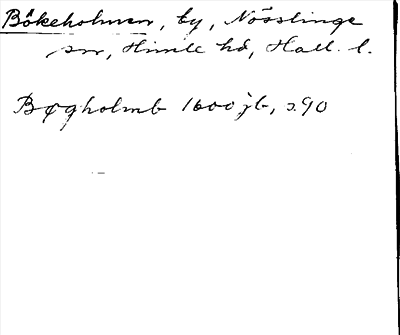 Bökeholmen, by, Nösslinge
sn, Himle hd, Hall. l.
Bøgholmb 1600 jb, s. 90